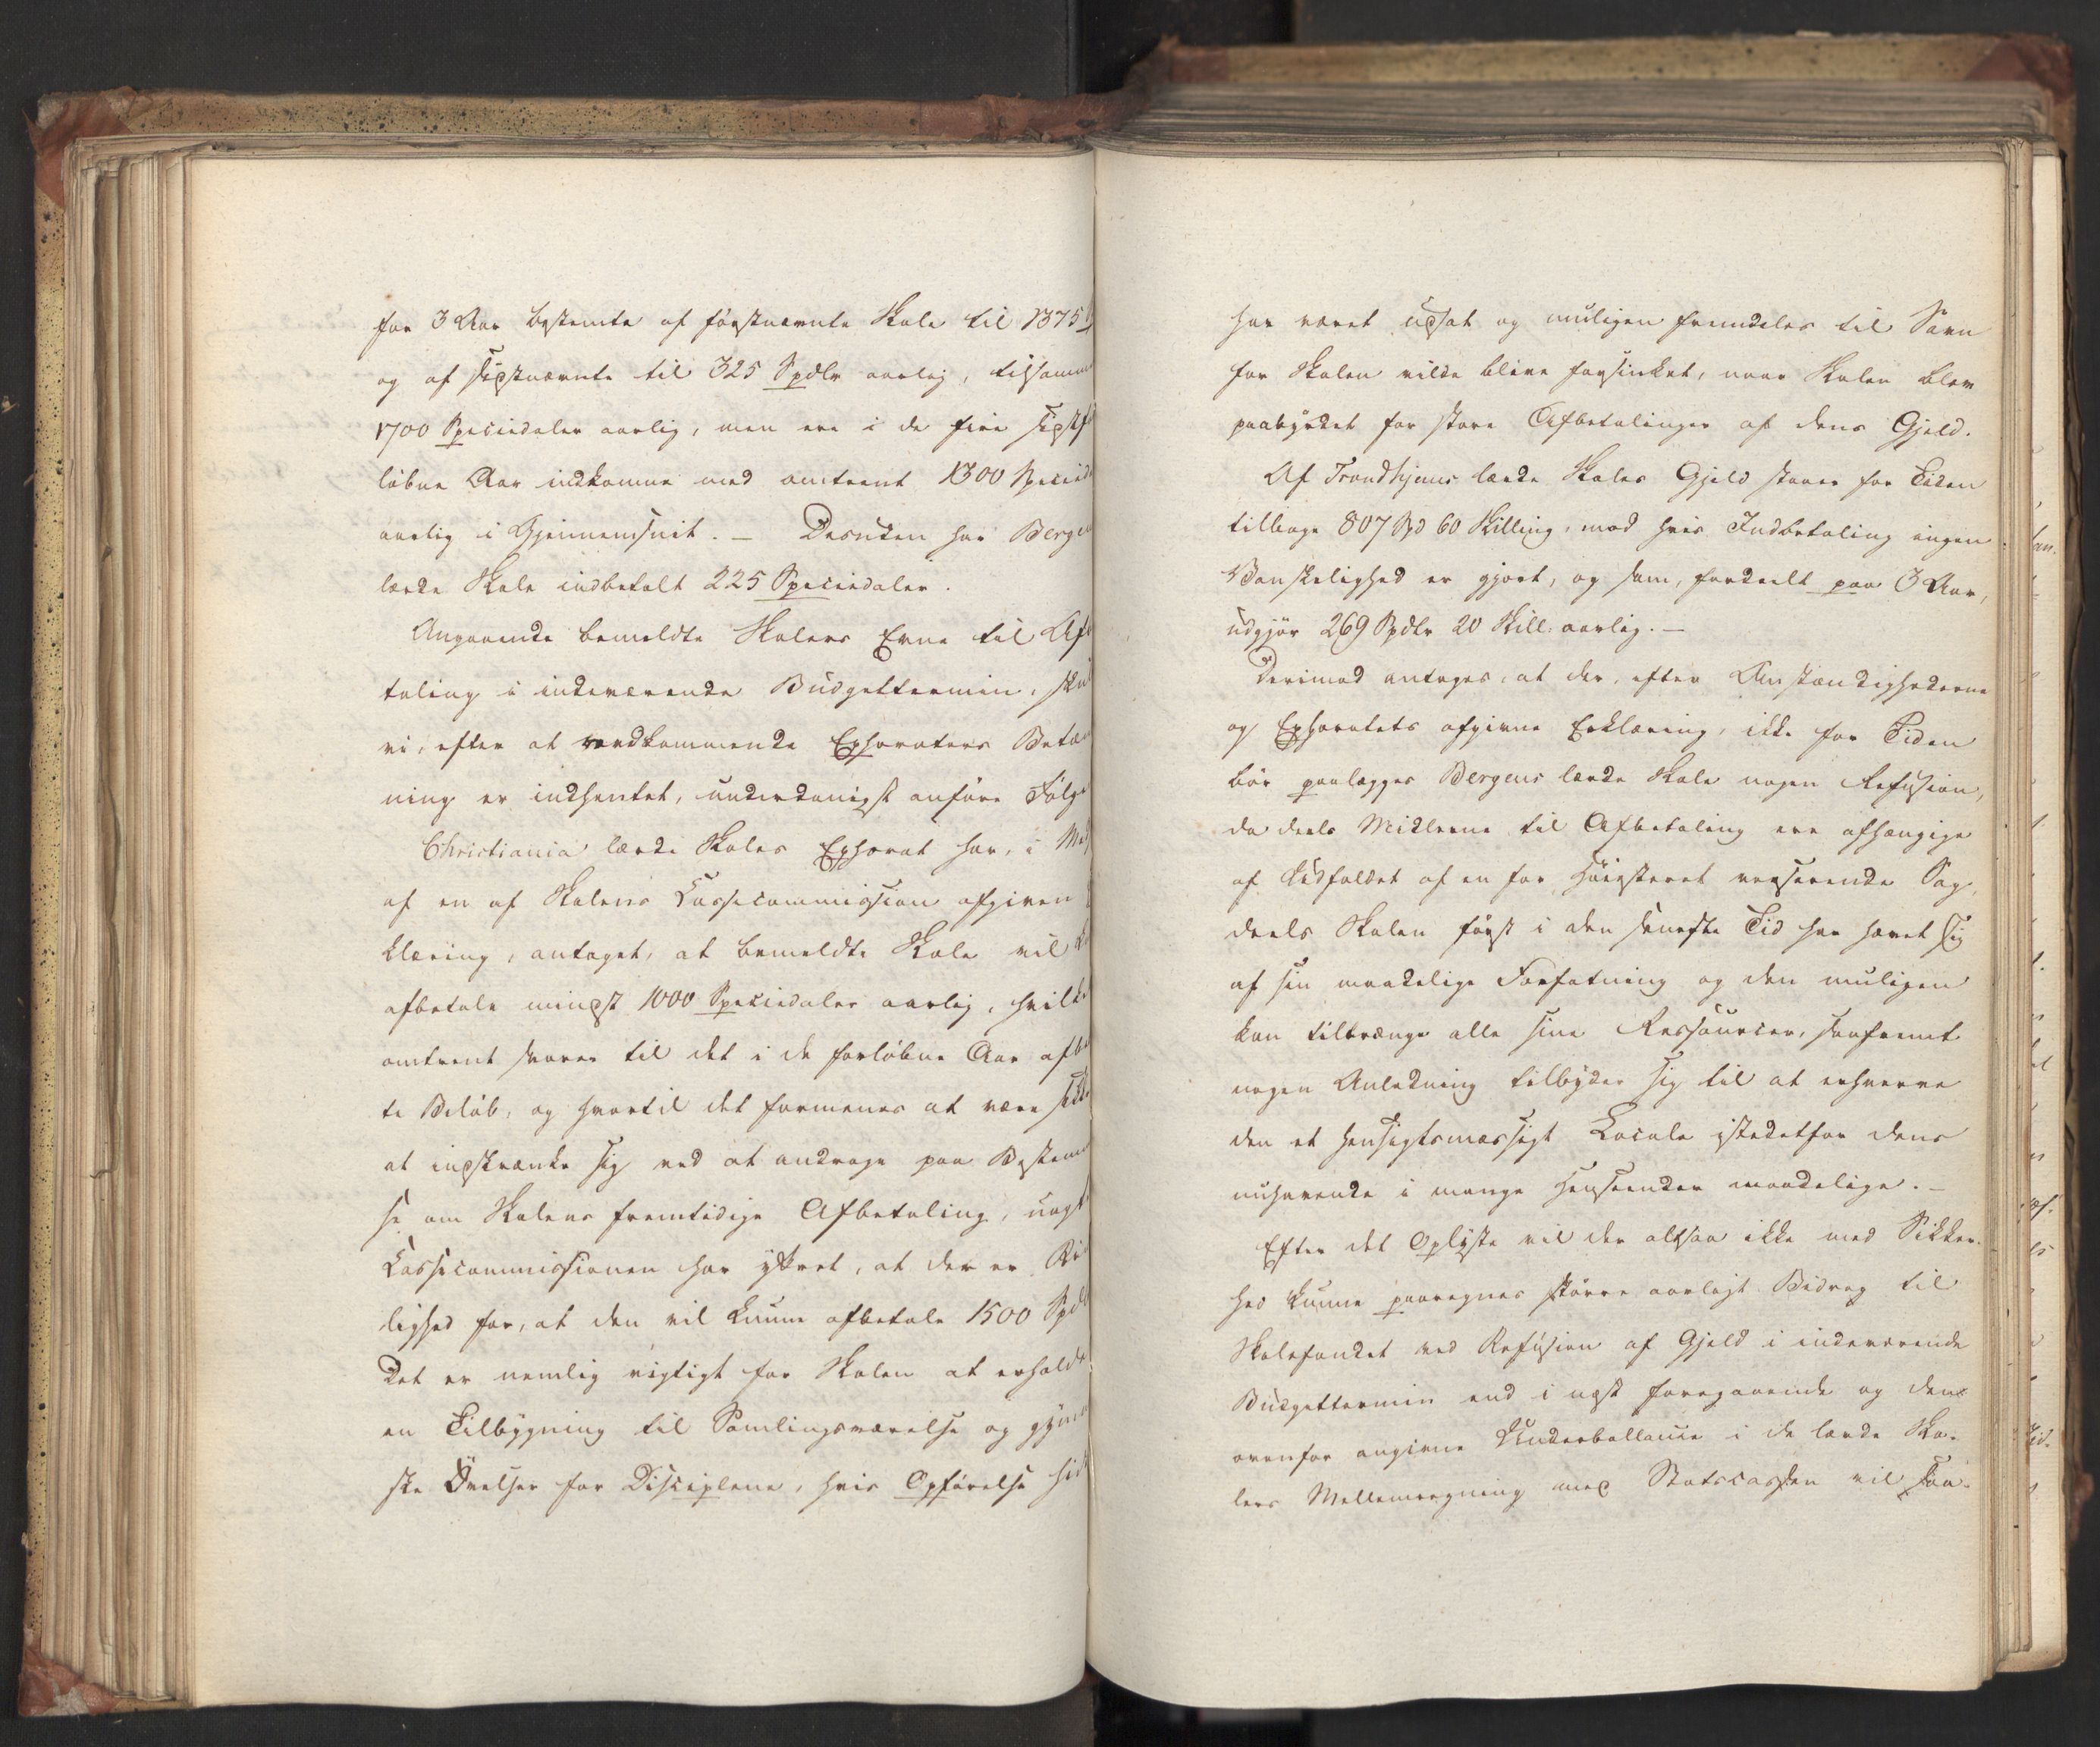 for 3 Aar bestemte af førstnævnte Skole til 1375
og af sidstnævnte til 325 Spdlr aarlig, tilsamm
1700 Speciedaler aarlig, men ere i de fire sidstf
løbne Aar indkomne med omtrent 1300 Specied
aarlig i Gjennemsnit. – Desuden har Bergen
lærde Skole indbetalt 225 Speciedaler.
Angaaende bemeldte Skolers Evne til Afb
taling i indeværende Budgettermin, skul
vi, efter at vedkommende Ephoraters Betæn
ning er indhentet, underdanigst anføre Følge
Christiania lærde Skoles Ephorat har, i Med
af en af Skolens Cassecommission afgiven
klæring, antaget, at bemeldte Skole vil
afbetale mindst 1000 Speciedaler aarlig, hvilke
omtrent svarer til det i de forløbne Aar afbe
te Beløb, og hvortil det formenes at være sikk
at indskrænke sig ved at andrage paa Bestem
se om Skolens fremtidige Afbetaling, uagt
Cassecommissionen har yttret, at der er Ri
lighed for, at den vil kunne afbetale 1500 Spdl
Det er nemlig vigtigt for Skolen at erholde
en Tilbygning til Samlingsværelse og gymna
ske Øvelser for Disciplene, hvis Opførelse hid
har været udsat og muligen fremdeles til Savn
for Skolen vilde blive forsinket, naar Skolen blev
paabyrdet for store Afbetalinger af dens Gjeld.
Af Trondhjems lærde Skoles Gjeld staaer for Tiden
tilbage 807 Spd 60 Skilling, mod hvis Indbetaling ingen
Vanskelighed er gjort, og som, fordeelt paa 3 Aar,
udgjør 269 Spdlr 20 Skill: aarlig. –
Derimod antages, at der, efter Omstændighederne
og Ephoratets afgivne Erklæring, ikke for Tiden
bør paalægges Bergens lærde Skole nogen Refusion,
da deels Midlerne til Afbetaling ere afhængige
af Udfaldet af en for Høiesteret verserende Sag,
deels Skolen først i den seneste Tid har hævet sig
af sin maadelige Forfatning og den muligen
kan tiltrænge alle sine Ressourcer, saafremt
nogen Anledning tilbyder sig til at erhverve
den et hensigtsmæssigt Locale istedetfor dens
nuhavende i mange Henseender maadelige. –
Efter det Oplyste vil der altsaa ikke med Sikker-
hed kunne paaregnes større aarligt Bidrag til
Skolefondet ved Refusion af Gjeld i indeværende
Budgettermin end i næst foregaaende og den
ovenfor angivne Underballance i de lærde Sko-
lers Mellemregning med Statscassen vil saa-